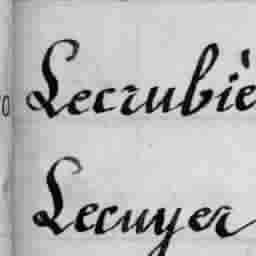 Lecrubiè
Lecuyer